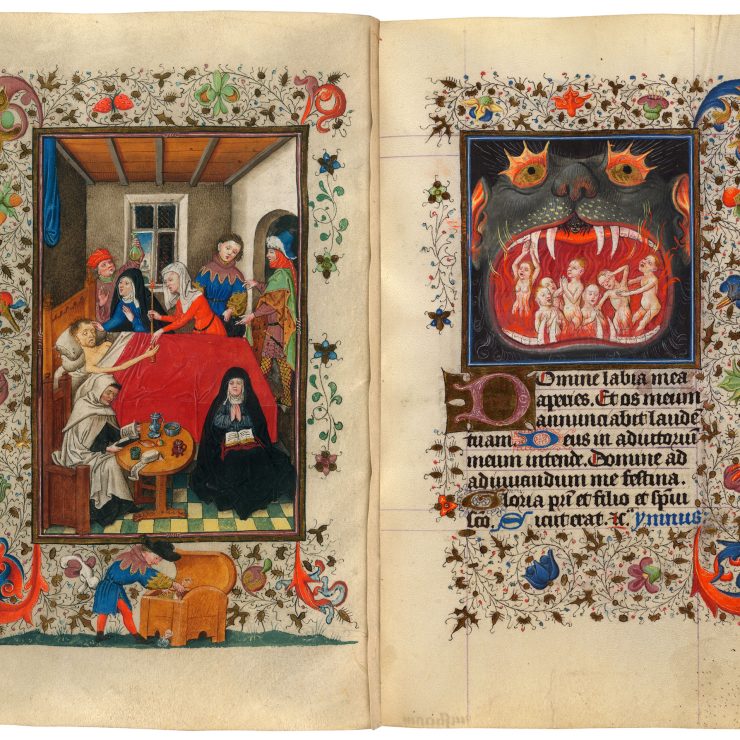 Domine labia mea
aperies. Et os meum
annunciabit laudē
tuam Deus in adiutoriū
meum intende. Domine ad
adiuuandum me festina.
Gloria pr̄i et filio et sp̄ui
sc̄o. Sicut erat. ⁊c̄. ymnus.